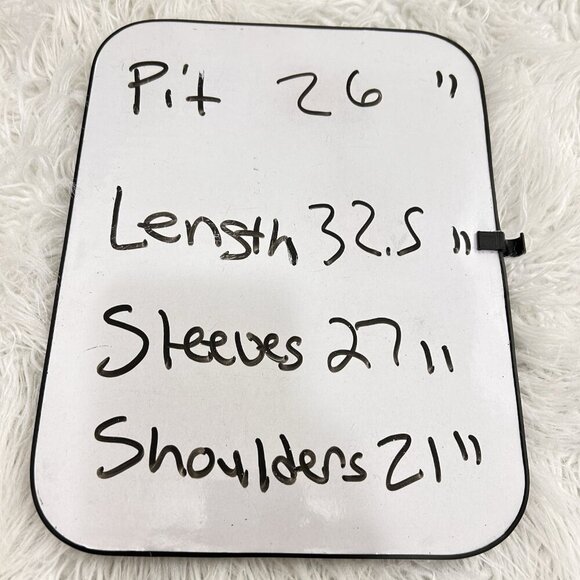 Pit 26 "
Length 32.5 "
Sleeves 27"
Shoulders 21"